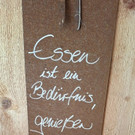 Essen
ist ein
Bedürfnis,
genießen